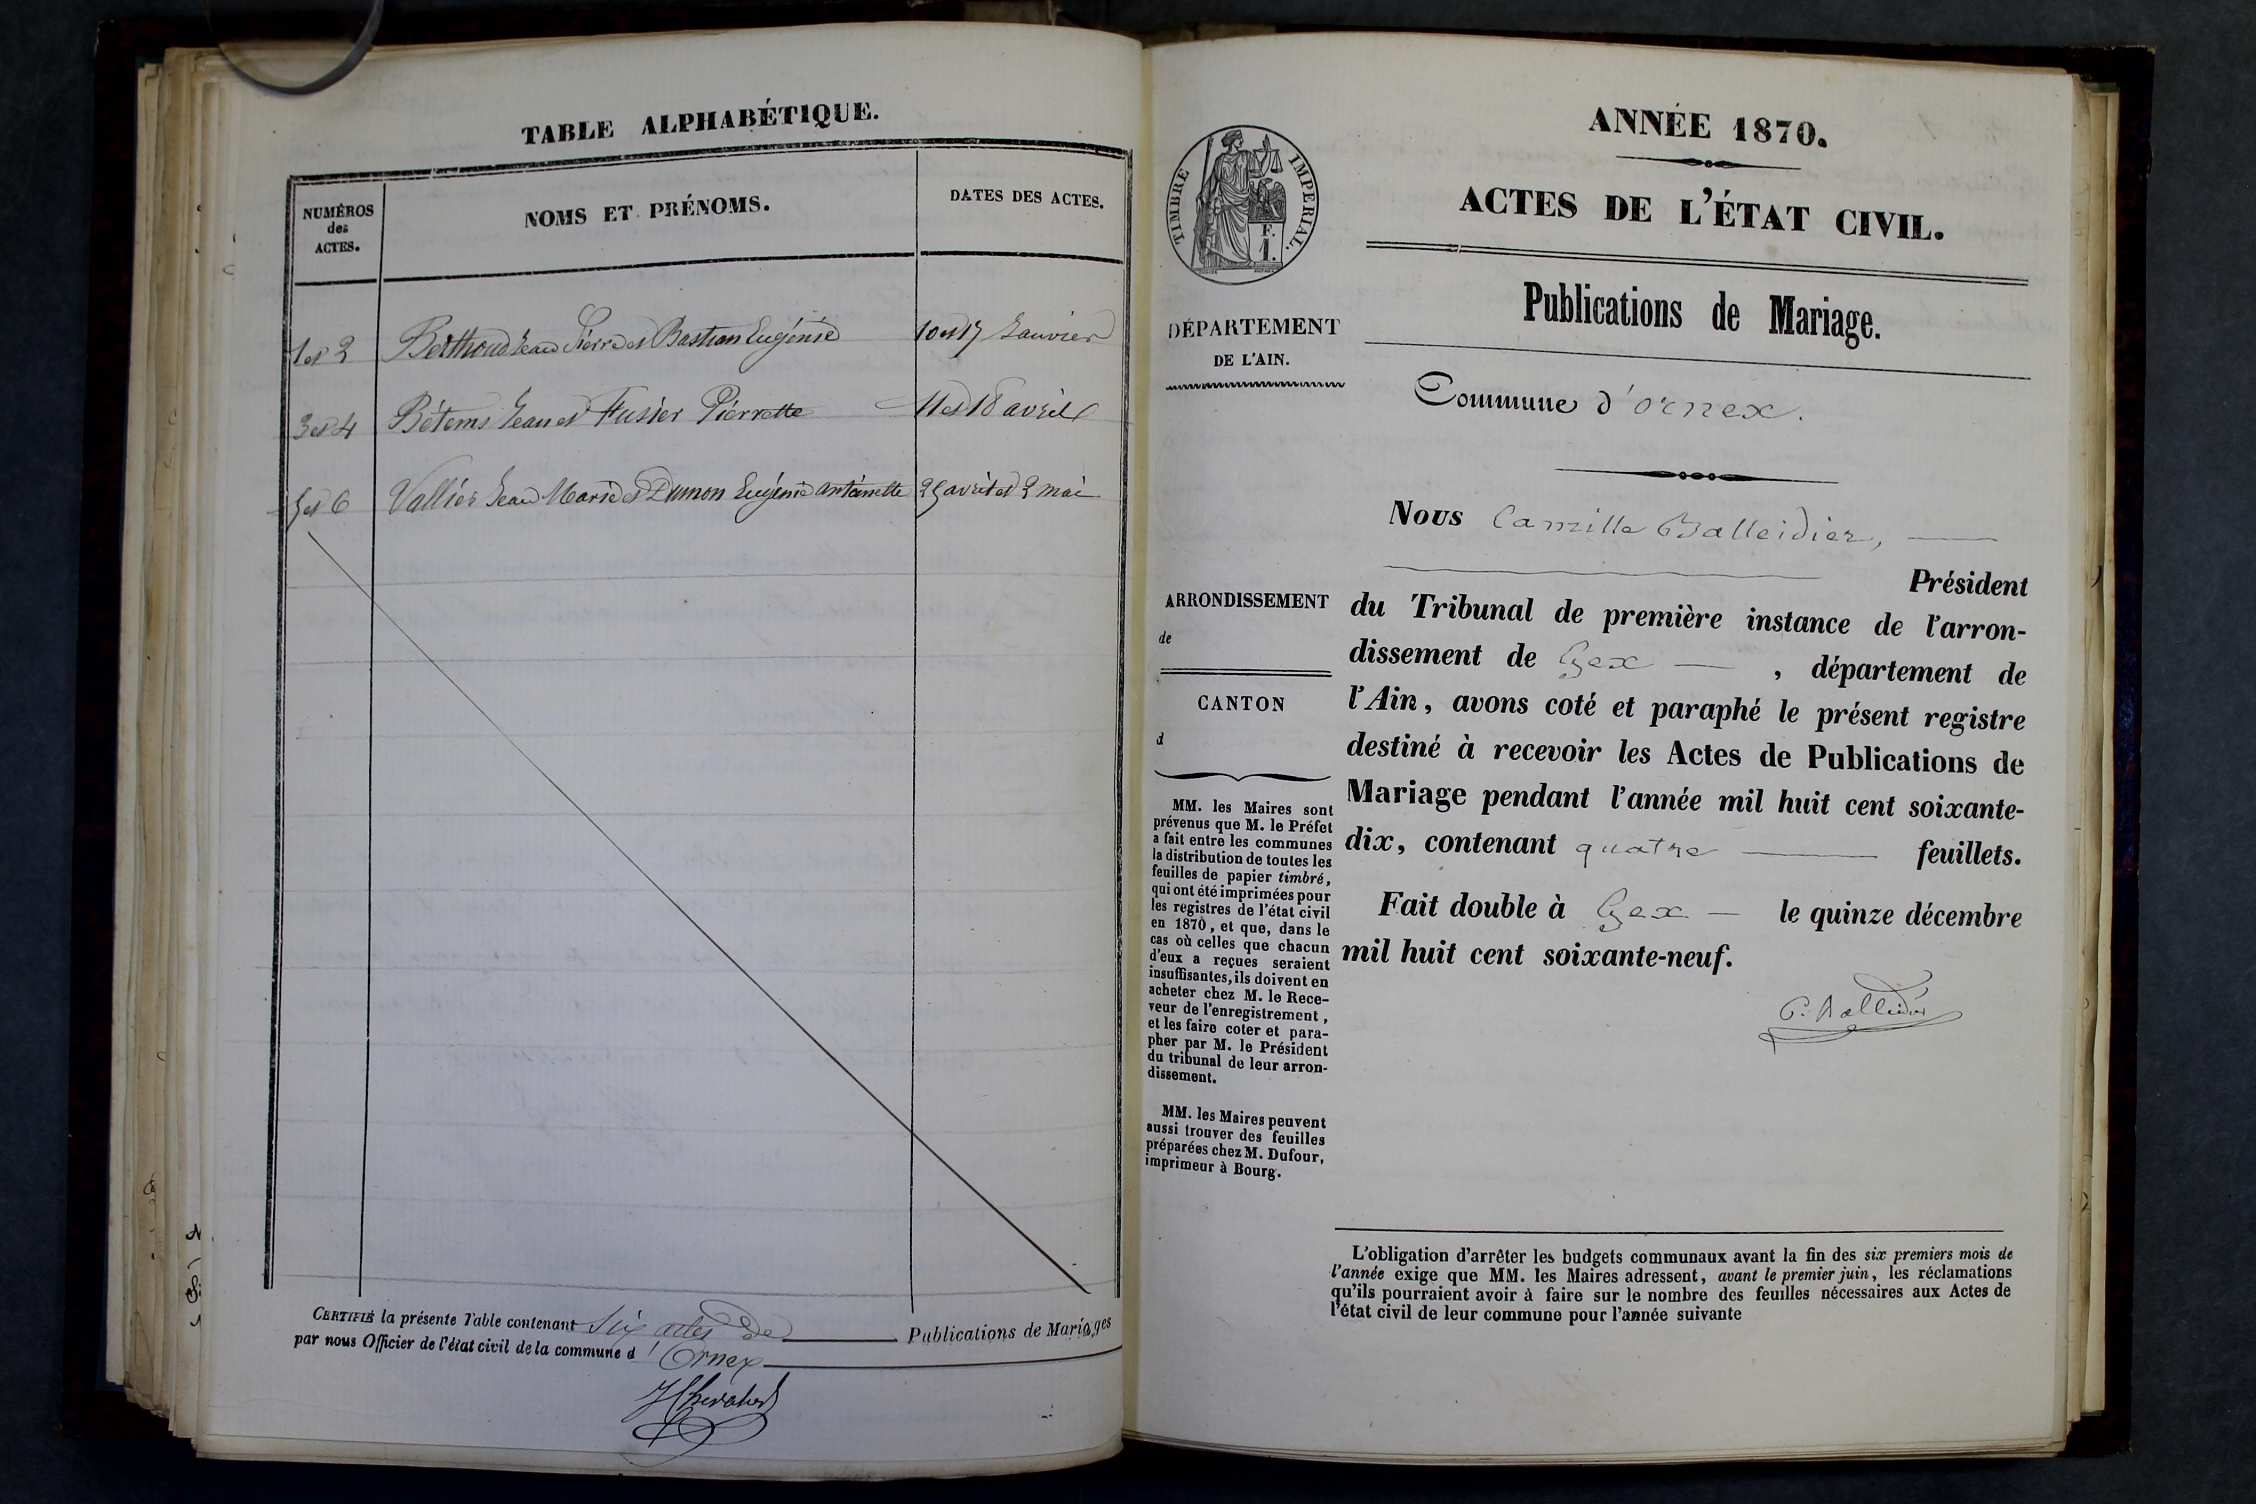 TABLE ALPHABÉTIQUE.
NUMÉROS
des
ACTES.
NOMS ET PRÉNOMS.
DATES DES ACTES.
1 et 2 Berthoud Jean Pierre et Bastian Eugénie 10 et 17 Janvier
3 et 4 Bétems Jean et Fusier Pierrette 11 et 18 avril
5 et 6 Vallier Jean Marie et Dumon Eugénie antoinette 25 avril et 2 mai
CERTIFIÉ la présente Table contenant Six actes de Publications de Mariages
par nous Officier de l'état civil de la commune d'Ornex
TIMBRE IMPERIAL.
F.
1.
DÉPARTEMENT
DE L'AIN.
ARRONDISSEMENT
de
CANTON
d
MM. les Maires sont
prévenus que M. le Préfet
a fait entre les communes
la distribution de toutes les
feuilles de papier timbré,
qui ont été imprimées pour
les registres de l'état civil
en 1870, et que, dans le
cas où celles que chacun
d'eux a reçues seraient
insuffisantes, ils doivent en
acheter chez M. le Rece-
veur de l'enregistrement,
et les faire coter et para-
pher par M. le Président
du tribunal de leur arron-
dissement.
MM. les Maires peuvent
aussi trouver des feuilles
préparées chez M. Dufour,
imprimeur à Bourg.
ANNÉE 1870.
ACTES DE L'ÉTAT CIVIL.
Publications de Mariage.
Commune d'ornex.
Nous Camille Balleidier,
Président
du Tribunal de première instance de l'arron-
dissement de Gex, département de
l'Ain, avons coté et paraphé le présent registre
destiné à recevoir les Actes de Publications de
Mariage pendant l'année mil huit cent soixante-
dix, contenant quatre feuillets.
Fait double à Gex le quinze décembre
mil huit cent soixante-neuf.
C. Balleidier
L'obligation d'arrêter les budgets communaux avant la fin des six premiers mois de
l'année exige que MM. les Maires adressent, avant le premier juin, les réclamations
qu'ils pourraient avoir à faire sur le nombre des feuilles nécessaires aux Actes de
l'état civil de leur commune pour l'année suivante